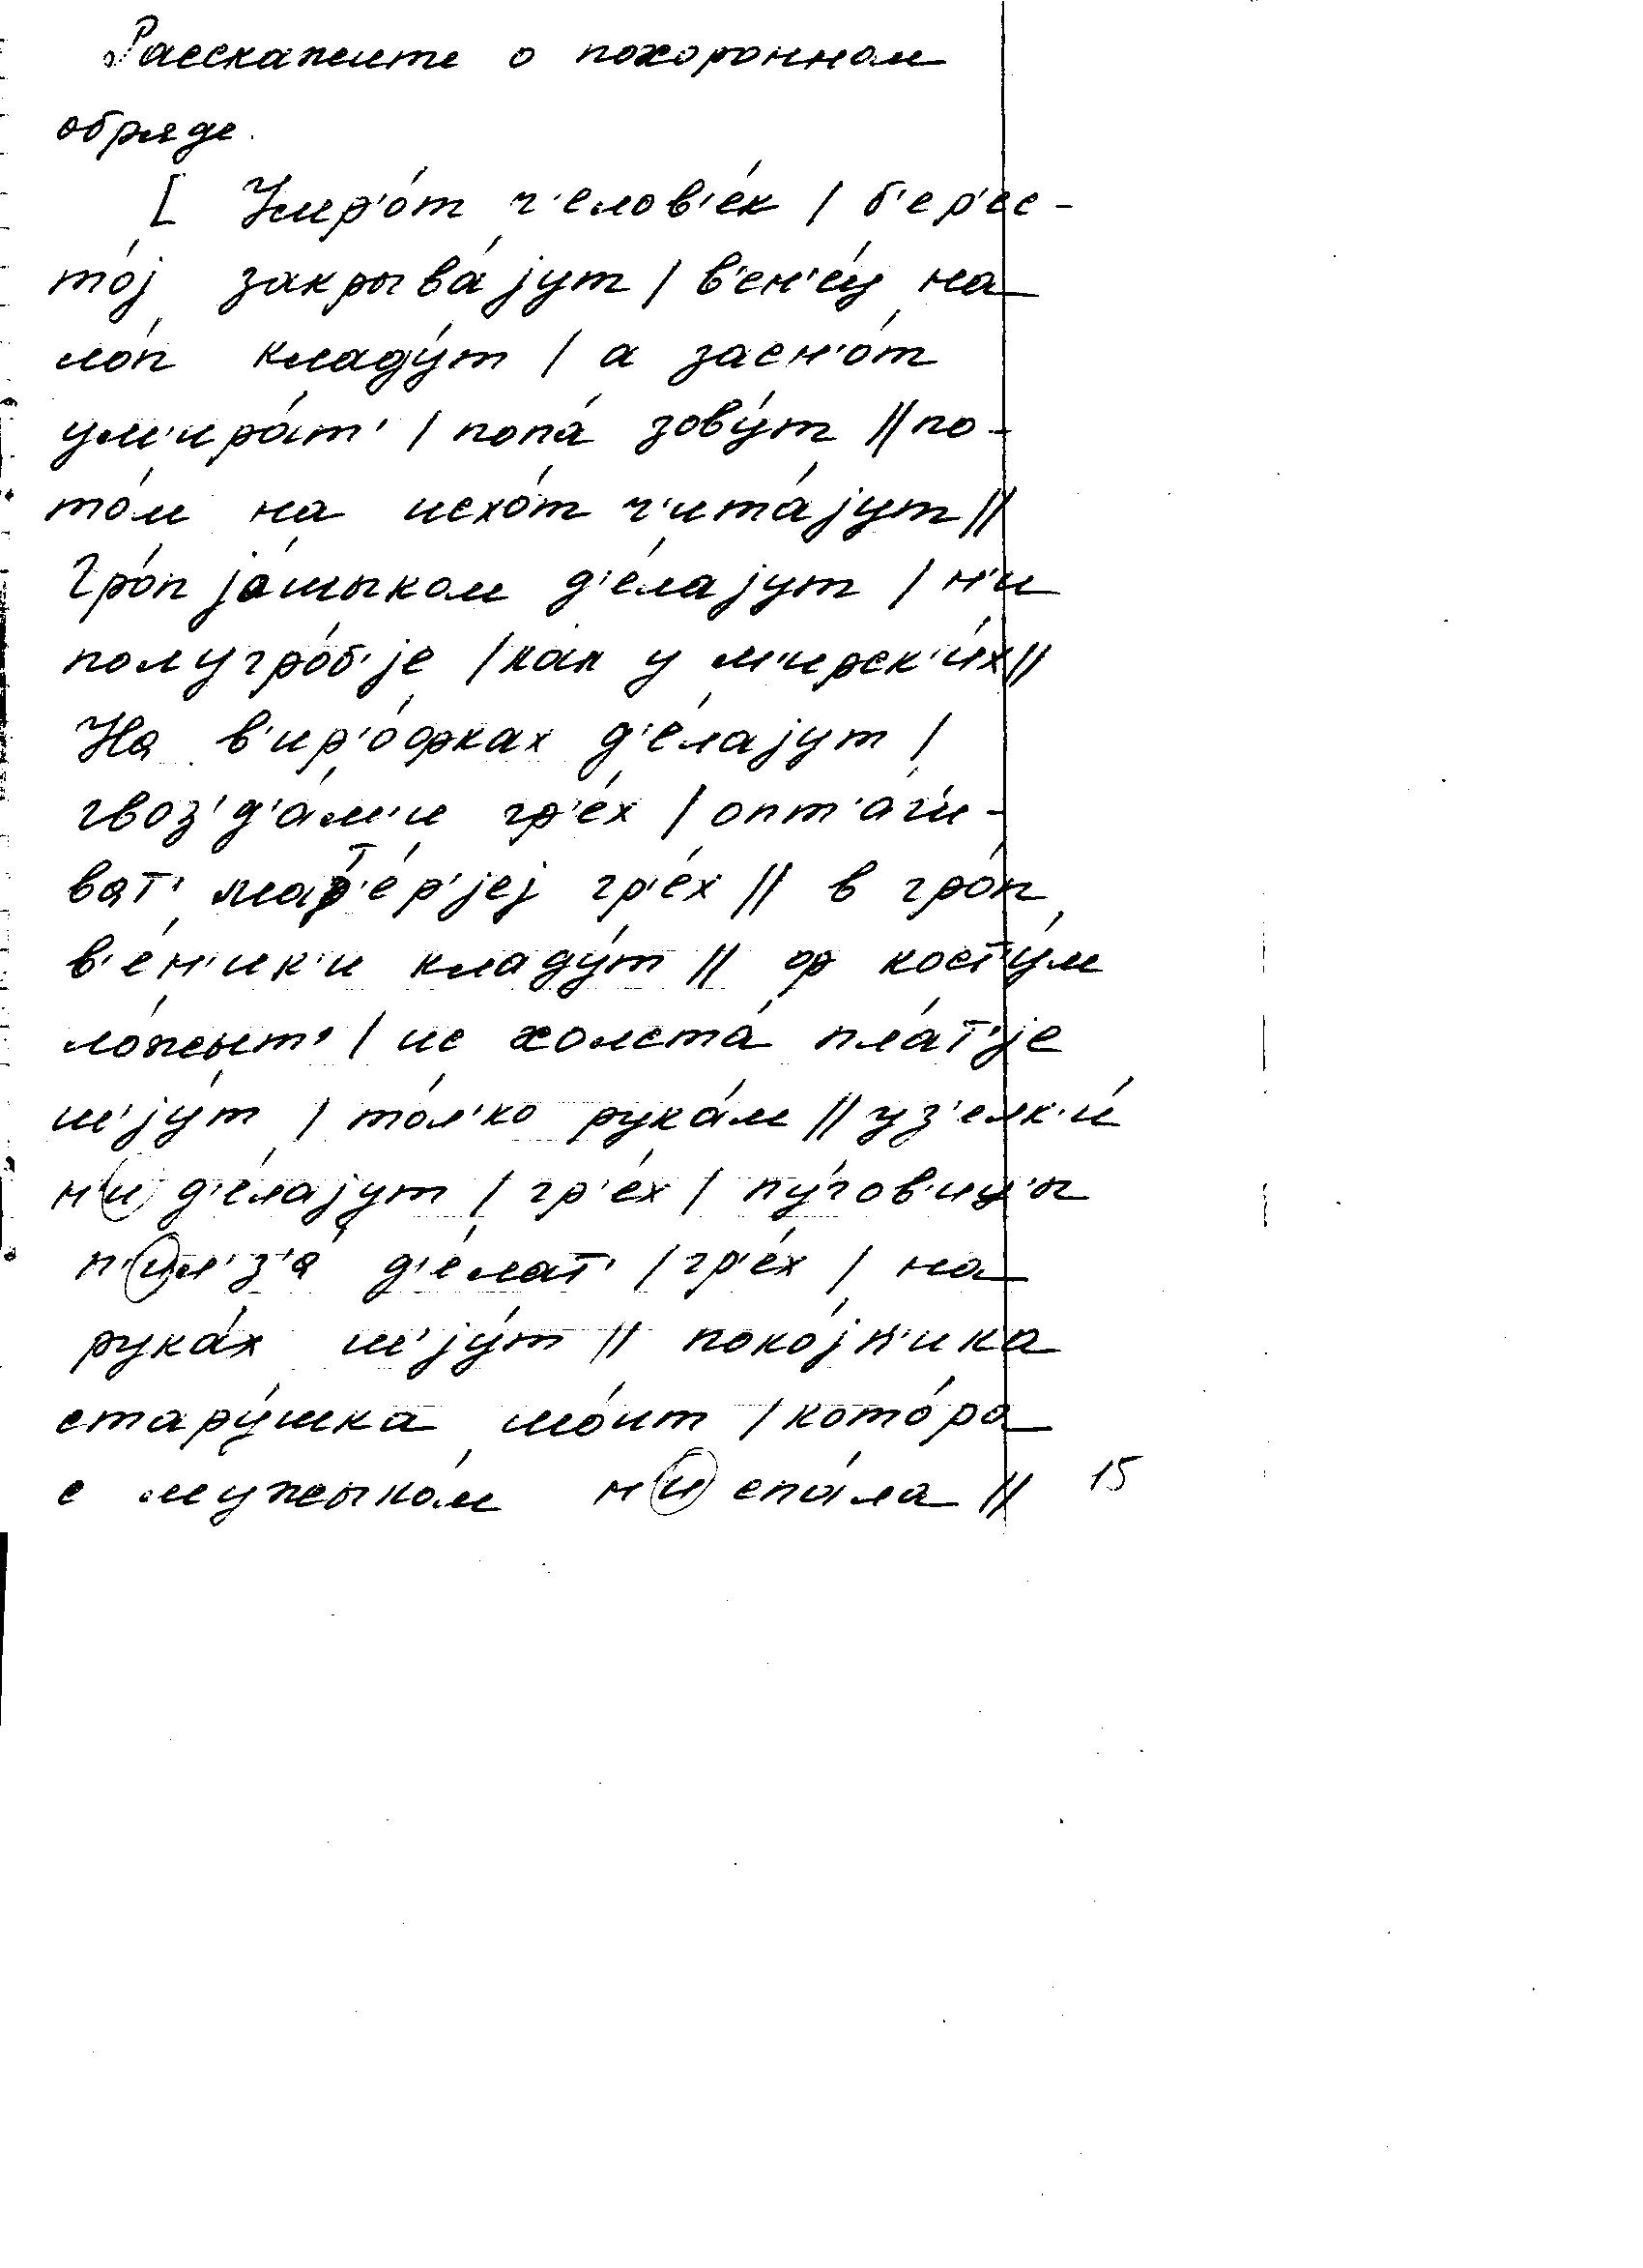 Расскажите о похоронном
обряде.
[ Умр'о́т ч'елов'е́к / б'ер'ес-
то́j закрыва́jут / в'ен'е́ц на
ло́п кладу́т / а засн'о́т
ум'ира́т' / попа́ зову́т // по-
то́м на исхо́т ч'ита́jут //
Гро́п jа́шыком д'е́лаjут / н'и
полугро́б'jе / как у м'ирск'и́х //
На в'ир'о́фках д'е́лаjут /
гвоз'д'а́м'и гр'е́х / опт'а́г'и-
ват' мат'е́р'jеj гр'е́х // в гро́п
в'е́н'ик'и кладу́т // ф кост'у́м
ло́жыт' / ис холста́ пла́т'jе
ш'jу́т / то́л'ко рука́м // уз'елк'и́
н'и д'е́лаjут / гр'е́х / пу́гов'иц'ы
н'ил'з'а́ д'е́лат' / гр'е́х / на
рука́х ш'jу́т // поко́jн'ика
стару́шка мо́ит / кото́ра
с мужыко́м н'и спа́ла // 15